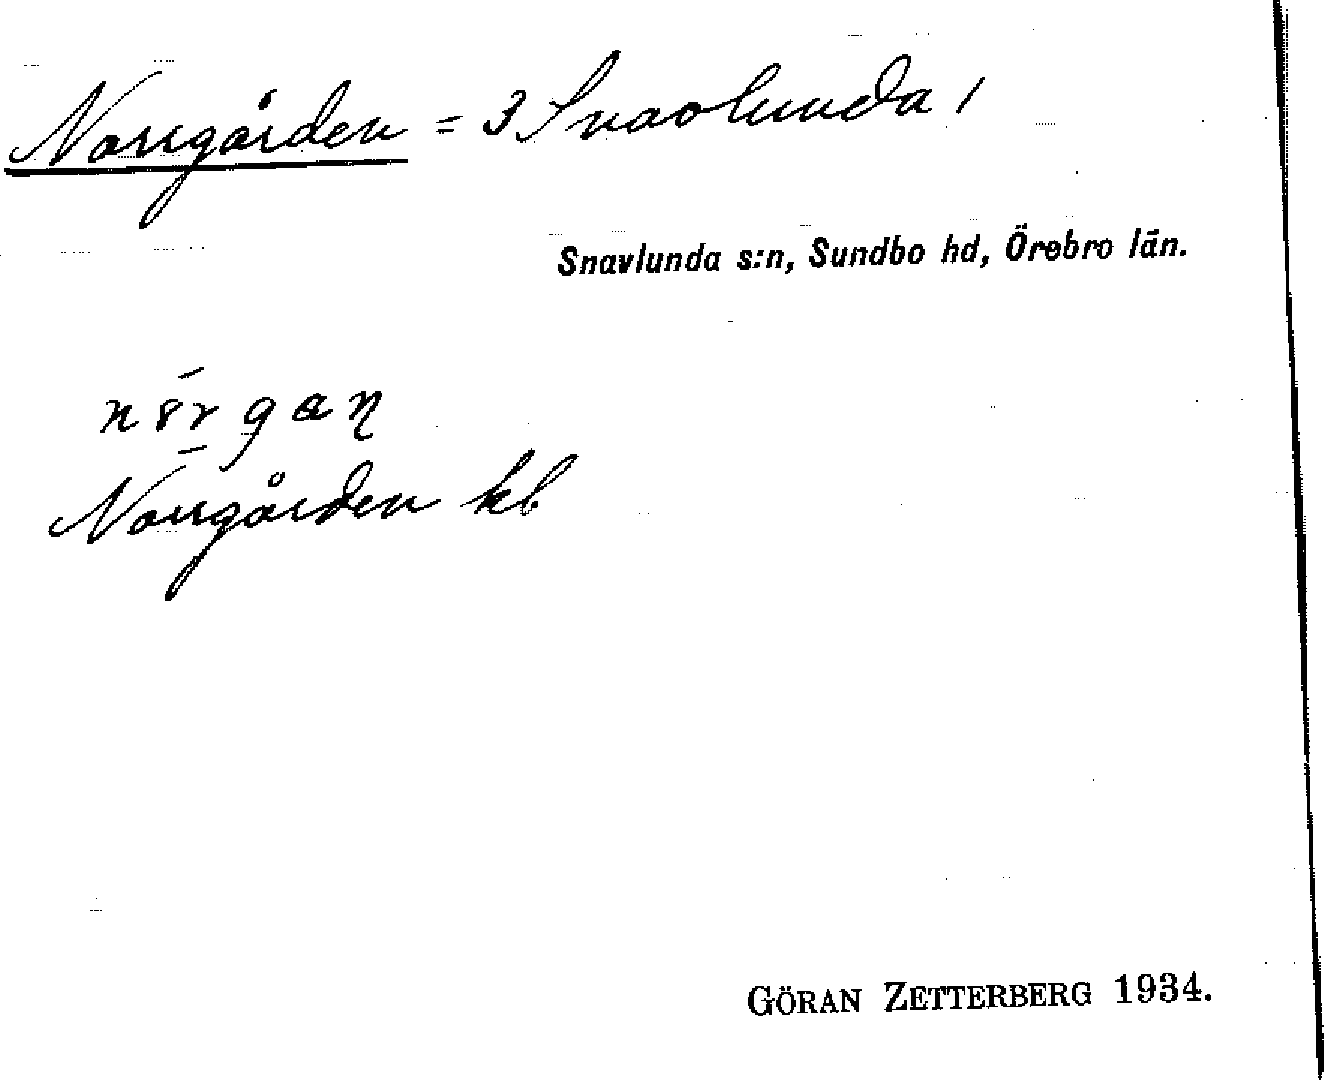 Norrgården = 3 Snavlunda 1
Snavlunda s:n, Sundbo hd, Örebro län.
Norrgården kb
GÖRAN ZETTERBERG 1934.